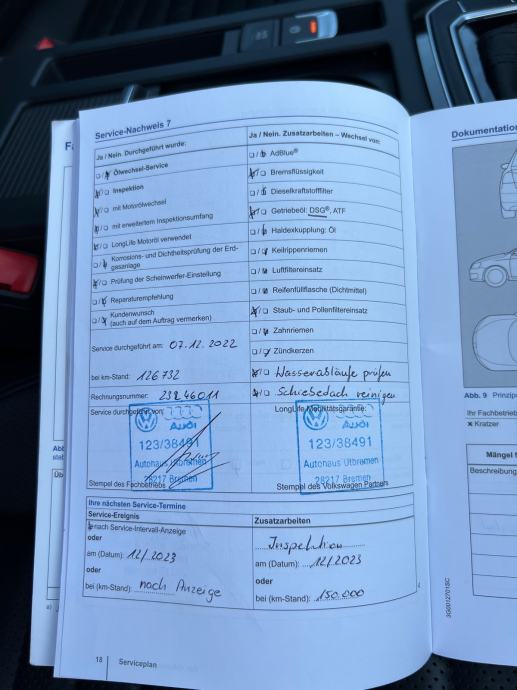 Service-Nachweis 7
Ja / Nein. Durchgeführt wurde:
Ölwechsel-Service
Inspektion
mit Motorölwechsel
mit erweitertem Inspektionsumfang
LongLife Motoröl verwendet
Korrosions- und Dichtheitsprüfung der Erd-
gasanlage
Prüfung der Scheinwerfer-Einstellung
Reparaturempfehlung
Kundenwunsch
(auch auf dem Auftrag vermerken)
Service durchgeführt am: 07.12.2022
bei km-Stand: 126732
Rechnungsnummer: 23246011
Service durchgeführt von:
Audi
123/38491
Autohaus Utbremen
28217 Bremen
Stempel des Fachbetriebs
Ja / Nein. Zusatzarbeiten – Wechsel von:
AdBlue®
Bremsflüssigkeit
Dieselkraftstofffilter
Getriebeöl: DSG®, ATF
Haldexkupplung: Öl
Keilrippenriemen
Luftfiltereinsatz
Reifenfüllflasche (Dichtmittel)
Staub- und Pollenfiltereinsatz
Zahnriemen
Zündkerzen
Wasserabläufe prüfen
Schiebedach reinigen
LongLife Mobilitätsgarantie:
Audi
123/38491
Autohaus Utbremen
28217 Bremen
Stempel des Volkswagen Partners
Ihre nächsten Service-Termine
Service-Ereignis
nach Service-Intervall-Anzeige
oder
am (Datum): 12/2023
oder
bei (km-Stand): nach Anzeige
Zusatzarbeiten
Inspektion
am (Datum): 12/2023
oder
bei (km-Stand): 150.000
18 Serviceplan
3G0012701SC
Dokumentation
Abb. 9 Prinzip
Ihr Fachbetrieb
× Kratzer
Mängel
Beschreibung